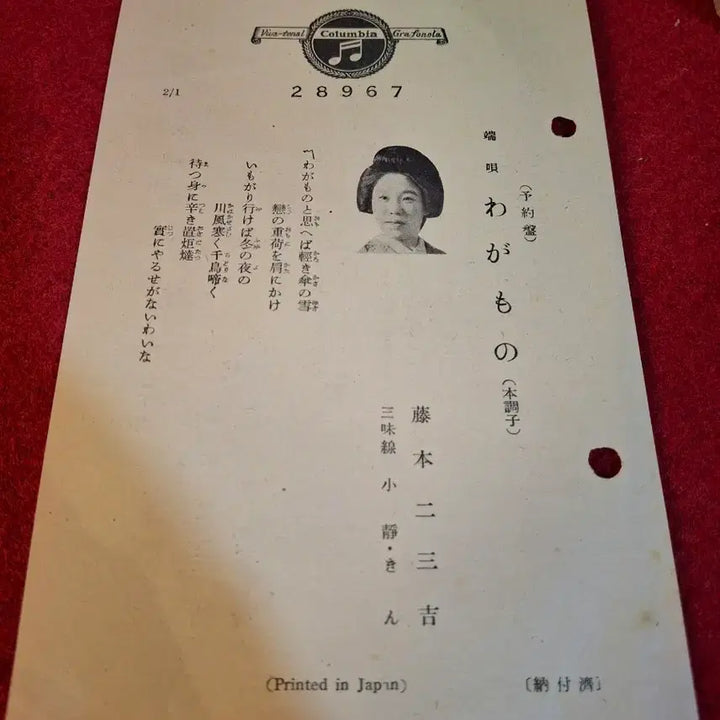 Viva-tonal Columbia Grafonola
28967
2/1
(予約盤)
端唄 わがもの (本調子)
藤本二三吉
三味線 小靜・きん
〽わがものと思へば輕き傘の雪
戀の重荷を肩にかけ
いもがり行けば冬の夜の
川風寒く千鳥啼く
待つ身に辛き置炬燵
實にやるせがないわいな
(Printed in Japan)
〔納付濟〕